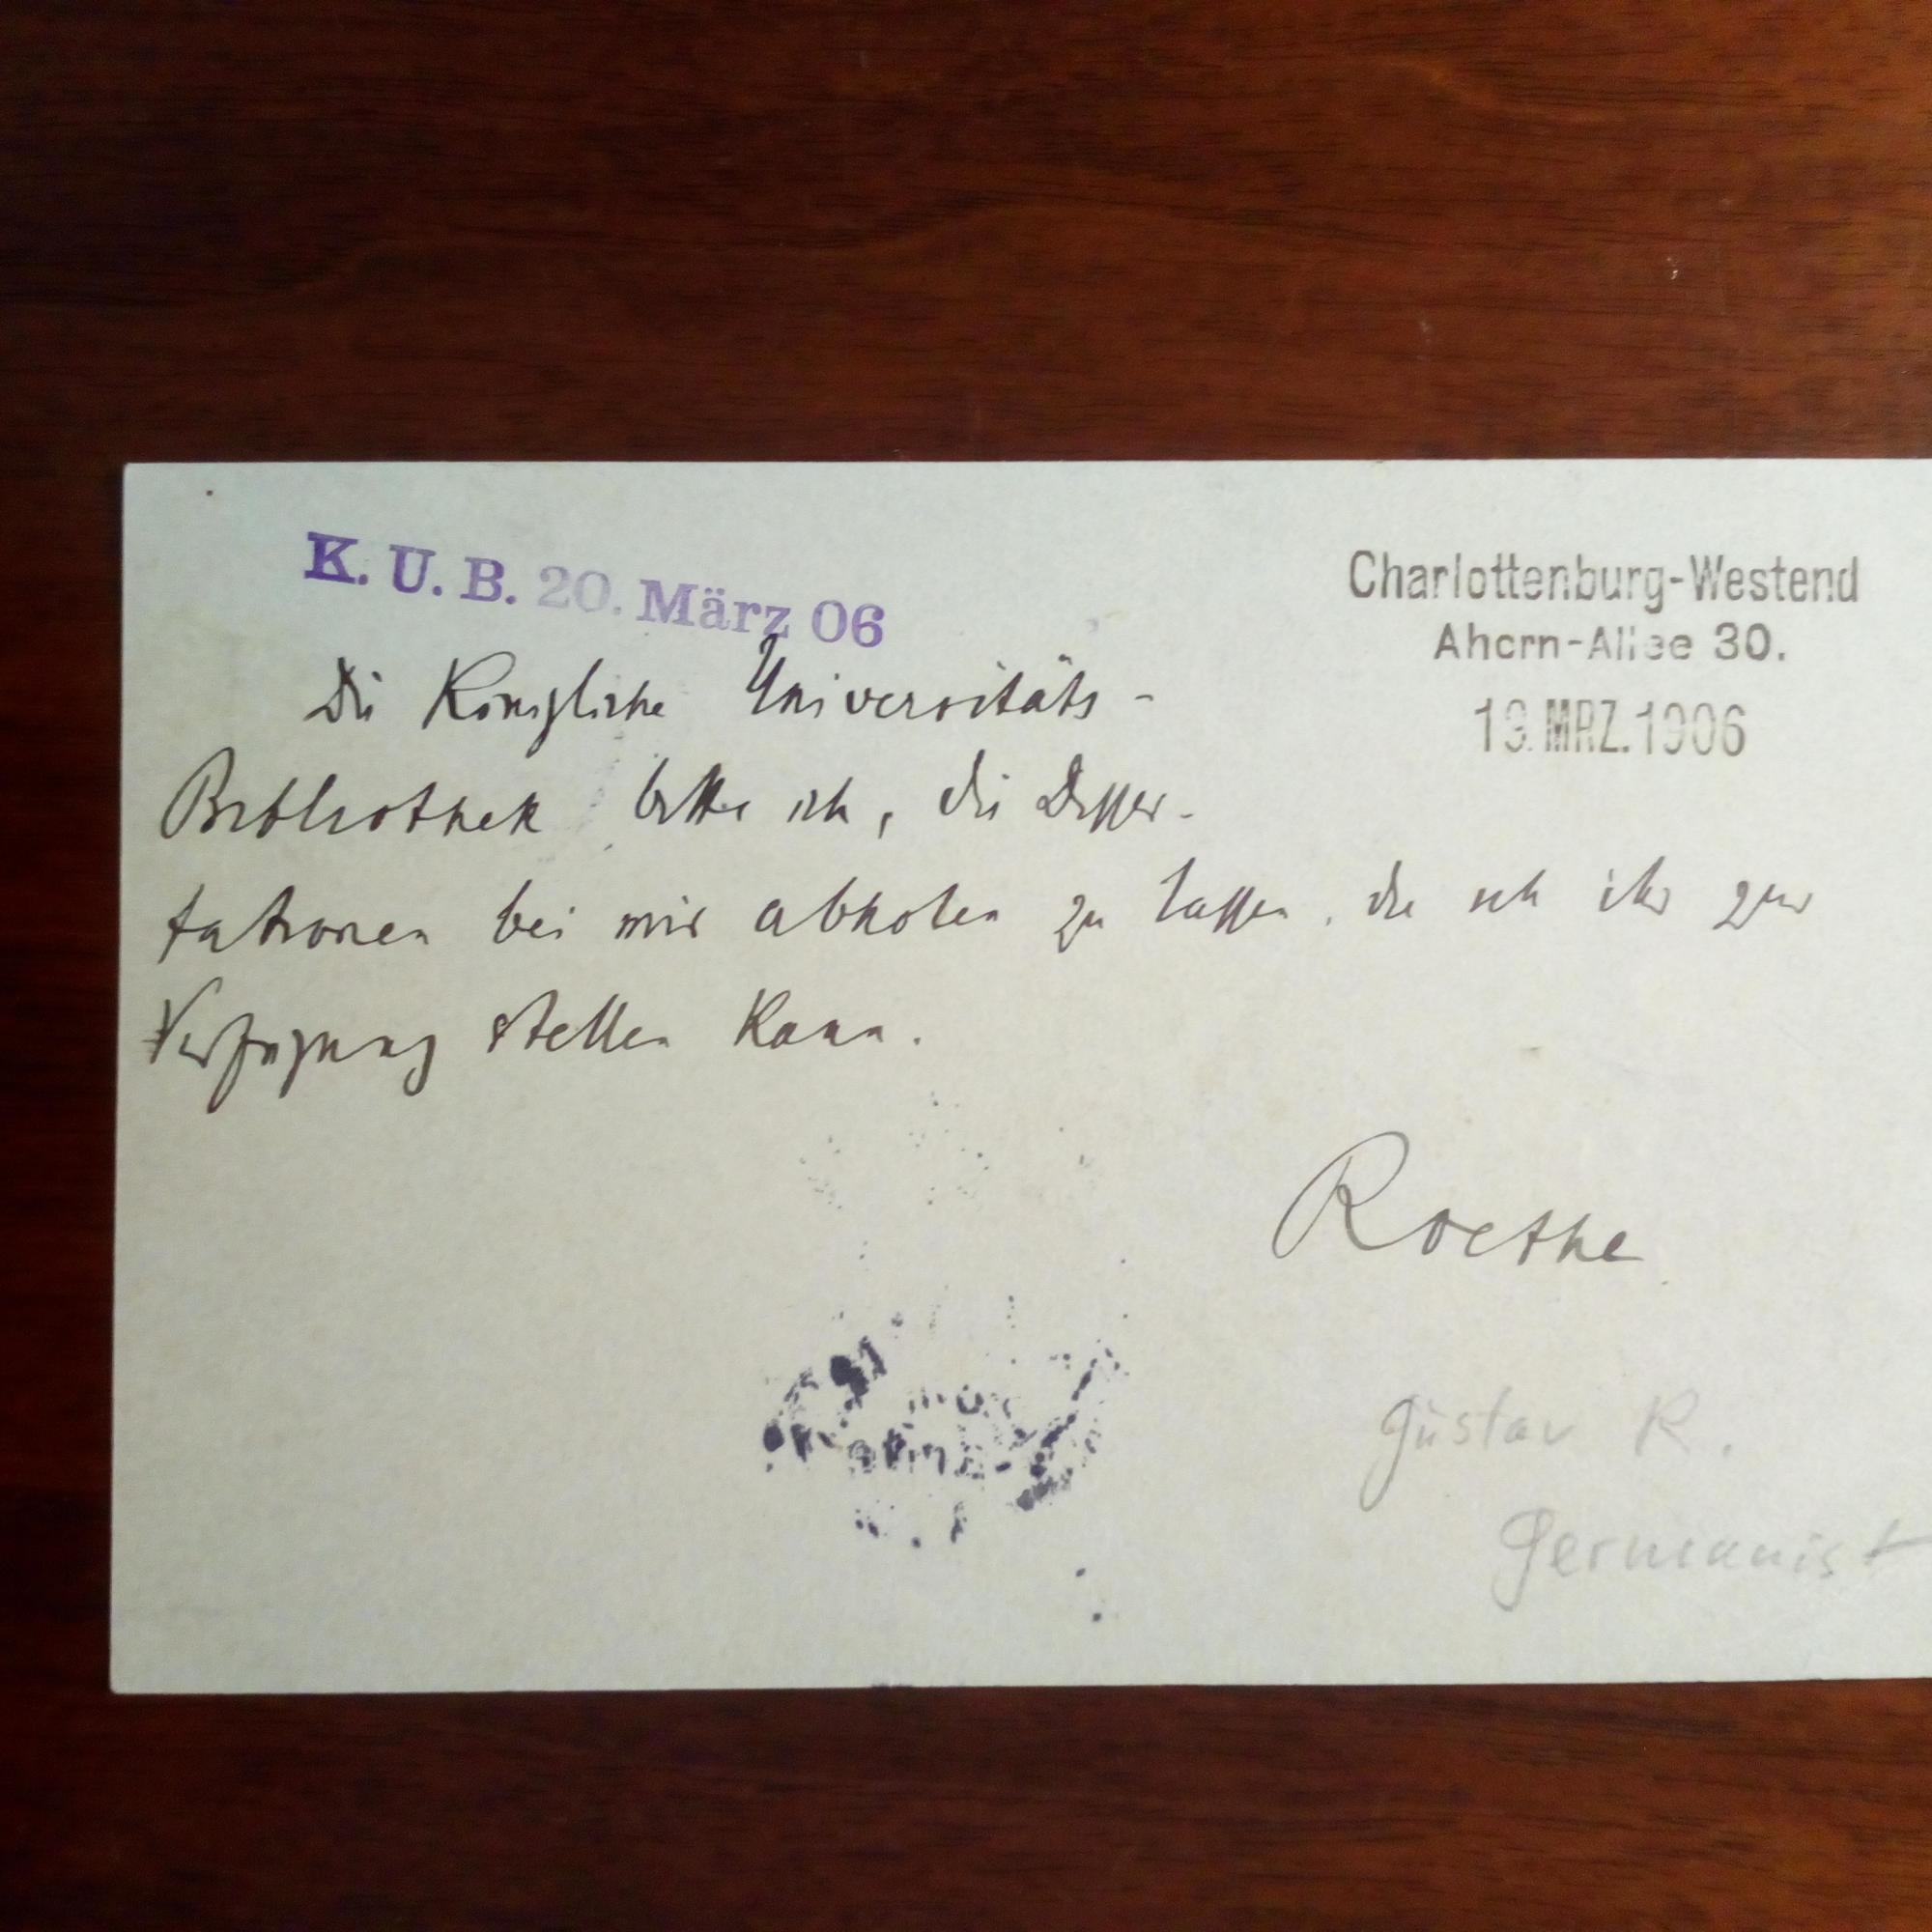 K. U. B. 20. März 06
Charlottenburg-Westend
Ahorn-Allee 30.
19. MRZ. 1906
Die Königliche Universitäts-
Bibliothek bitte ich, die Disser-
tationen bei mir abholen zu lassen, die ich ihr zur
Verfügung stellen kann.
Roethe
Gustav R.
Germanist